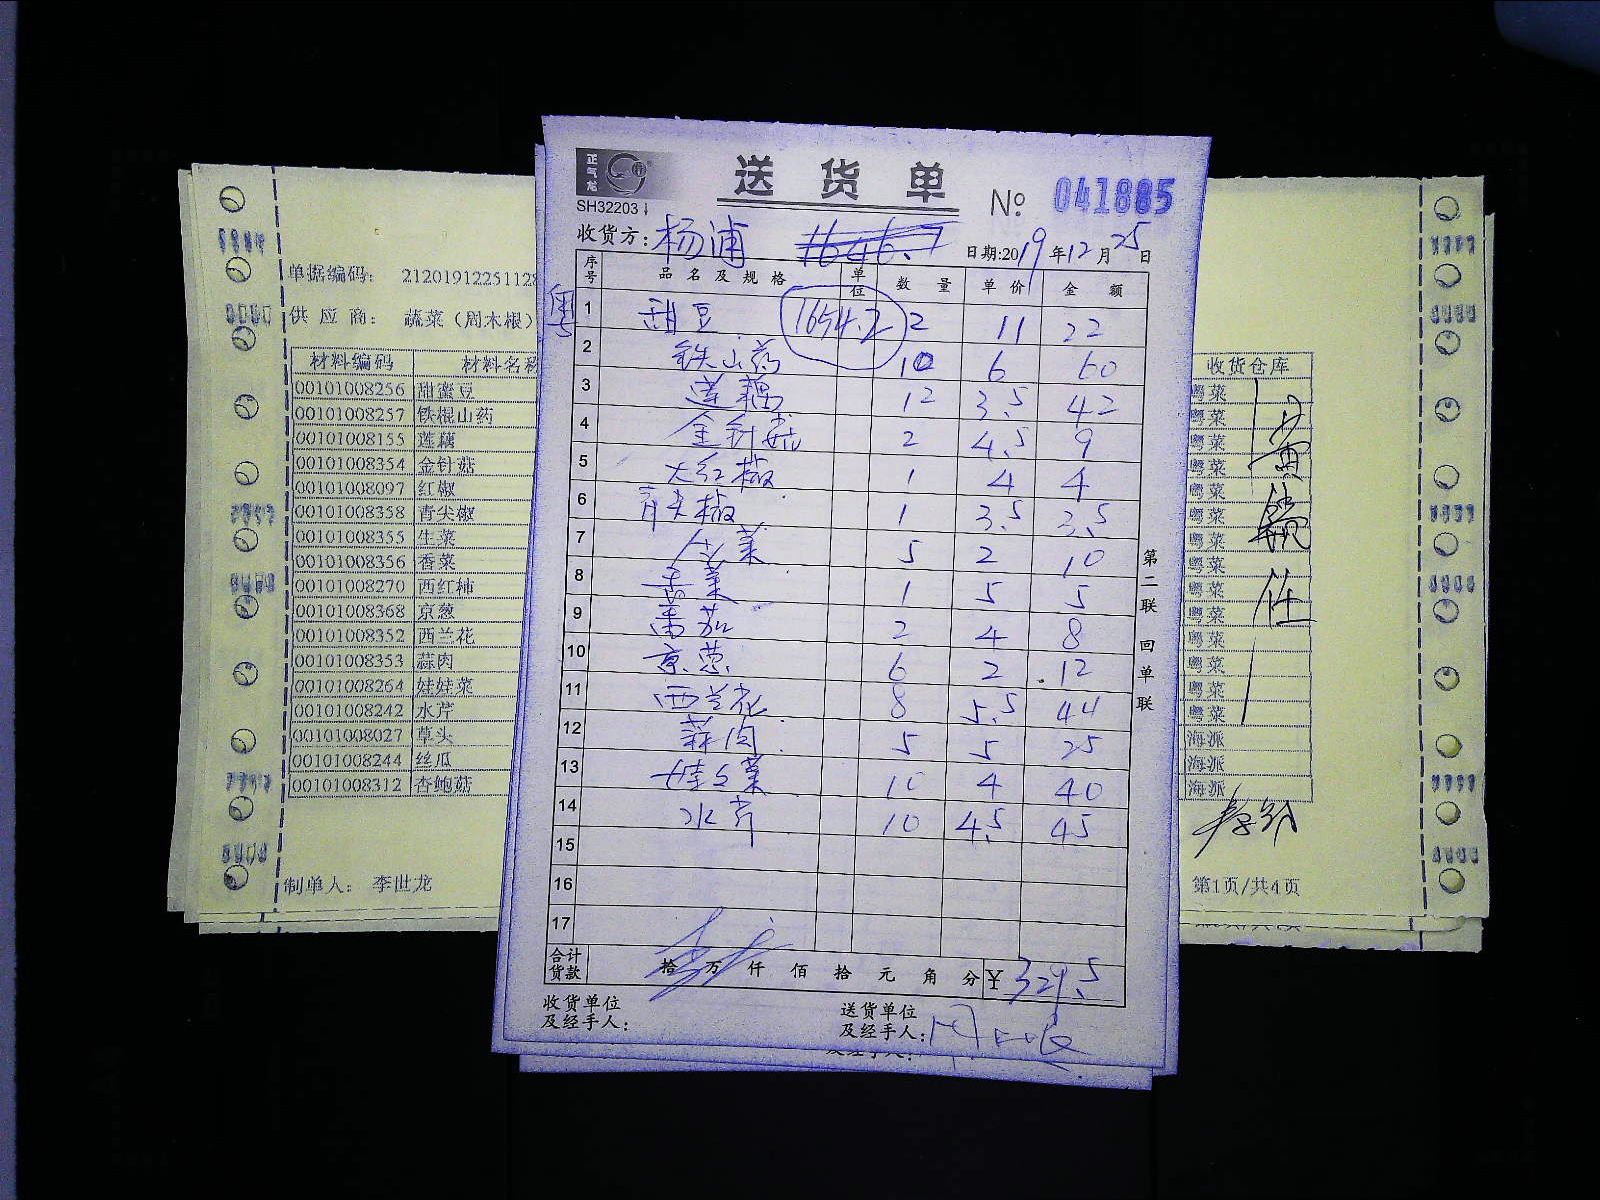 正气龙
送货单
No 041885
SH32203
收货方: 杨浦 1646.7 日期:2019年12月25日
粤
序号 品名及规格 单位 数量 单价 金额
1654.2
1 甜豆 2 11 22
2 铁山药 10 6 60
3 莲藕 12 3.5 42
4 金针菇 2 4.5 9
5 大红椒 1 4 4
6 青尖椒 1 3.5 3.5
7 生菜 5 2 10
8 香菜 1 5 5
9 番茄 2 4 8
10 京葱 6 2 12
11 西兰花 8 5.5 44
12 蒜肉 5 5 25
13 娃娃菜 10 4 40
14 水芹 10 4.5 45
15
16
17
合计货款 拾 万 仟 佰 拾 元 角 分 ¥ 329.5
收货单位及经手人:
送货单位及经手人:
第二联 回单联
单据编码: 2120191225112
供应商: 蔬菜(周木根)
材料编码 材料名称
00101008256 甜蜜豆
00101008257 铁棍山药
00101008155 莲藕
00101008354 金针菇
00101008097 红椒
00101008358 青尖椒
00101008355 生菜
00101008356 香菜
00101008270 西红柿
00101008368 京葱
00101008352 西兰花
00101008353 蒜肉
00101008264 娃娃菜
00101008242 水芹
00101008027 草头
00101008244 丝瓜
00101008312 杏鲍菇
制单人: 李世龙
收货仓库
粤菜
粤菜
粤菜
粤菜
粤菜
粤菜
粤菜
粤菜
粤菜
粤菜
粤菜
粤菜
粤菜
粤菜
海派
海派
海派
第1页/共4页